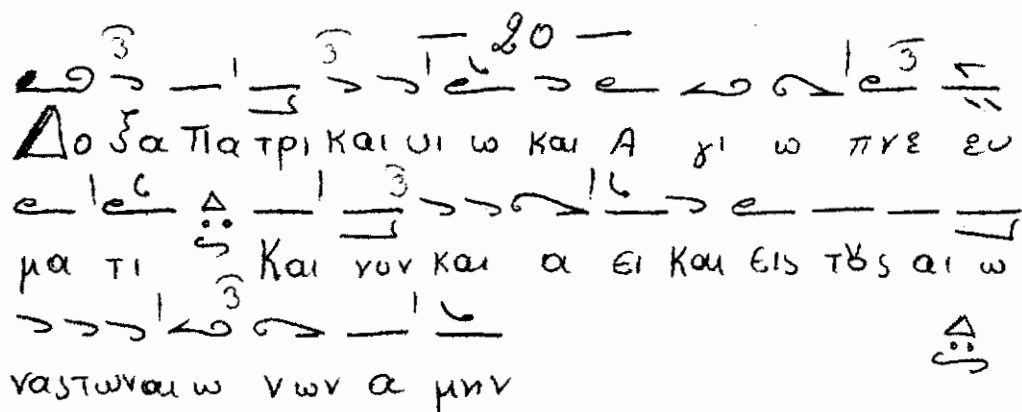 — 20 —
Δο ξα Πα τρι και υι ω και Α γι ω πνε ευ
μα τι Και νυν και α ει και εις τȣς αι ω
νας των αι ω νων α μην